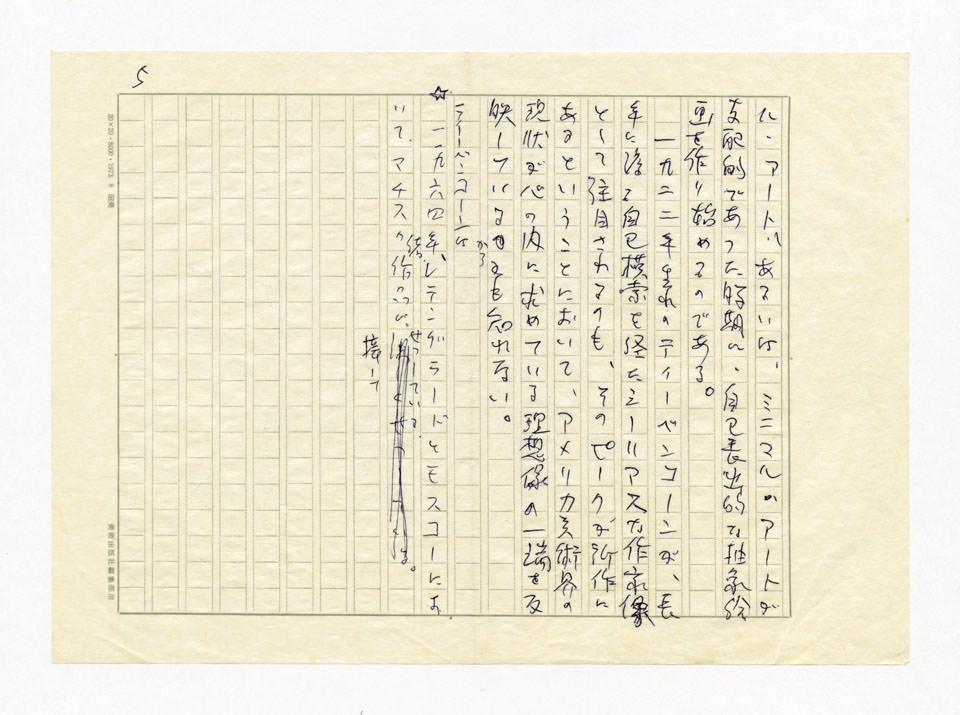 5
ル・アート、あるいは、ミニマル・アートが
支配的であった時期に、自己表出的な抽象絵
画を作り始めるのである。
一九二二年生れのディーベンコーンが、長
年に渡る自己模索を経たシーリアスな作家像
として注目されるのも、そのピークが近作に
あるということにおいて、アメリカ美術界の
現状が心の内に求めている理想像の一端を反
映しているからかも知れない。
ディーベンコーンは
☆一九六四年、レニングラードとモスコーにお
いて、マチスの作品に
接して
せっしている。
20×20